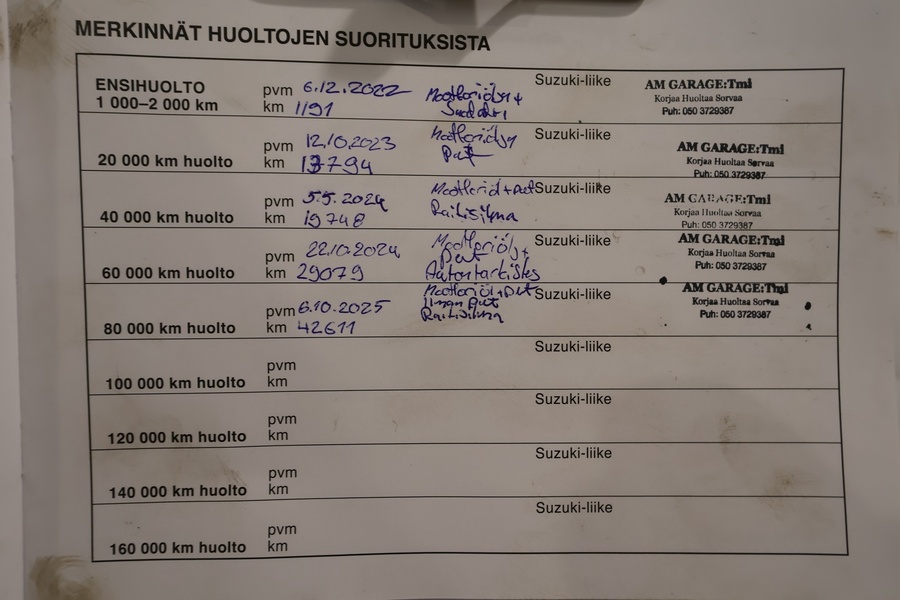 MERKINNÄT HUOLTOJEN SUORITUKSISTA
ENSIHUOLTO
1 000–2 000 km
pvm 6.12.2022
km 1191
Moottoriöljy +
Suodatin
Suzuki-liike
AM GARAGE:Tmi
Korjaa Huoltaa Sorvaa
Puh: 050 3729387
20 000 km huolto
pvm 12.10.2023
km 13794
Moottoriöljy
Put
Suzuki-liike
AM GARAGE:Tmi
Korjaa Huoltaa Sorvaa
Puh: 050 3729387
40 000 km huolto
pvm 5.5.2024
km 19748
Raitisilma
Suzuki-liike
AM GARAGE:Tmi
Korjaa Huoltaa Sorvaa
Puh: 050 3729387
60 000 km huolto
pvm 22.10.2024
km 29079
Put
Suzuki-liike
AM GARAGE:Tmi
Korjaa Huoltaa Sorvaa
Puh: 050 3729387
80 000 km huolto
pvm 6.10.2025
km 42611
Ilman Put
Raitisilma
Suzuki-liike
AM GARAGE:Tmi
Korjaa Huoltaa Sorvaa
Puh: 050 3729387
100 000 km huolto
pvm
km
Suzuki-liike
120 000 km huolto
pvm
km
Suzuki-liike
140 000 km huolto
pvm
km
Suzuki-liike
160 000 km huolto
pvm
km
Suzuki-liike